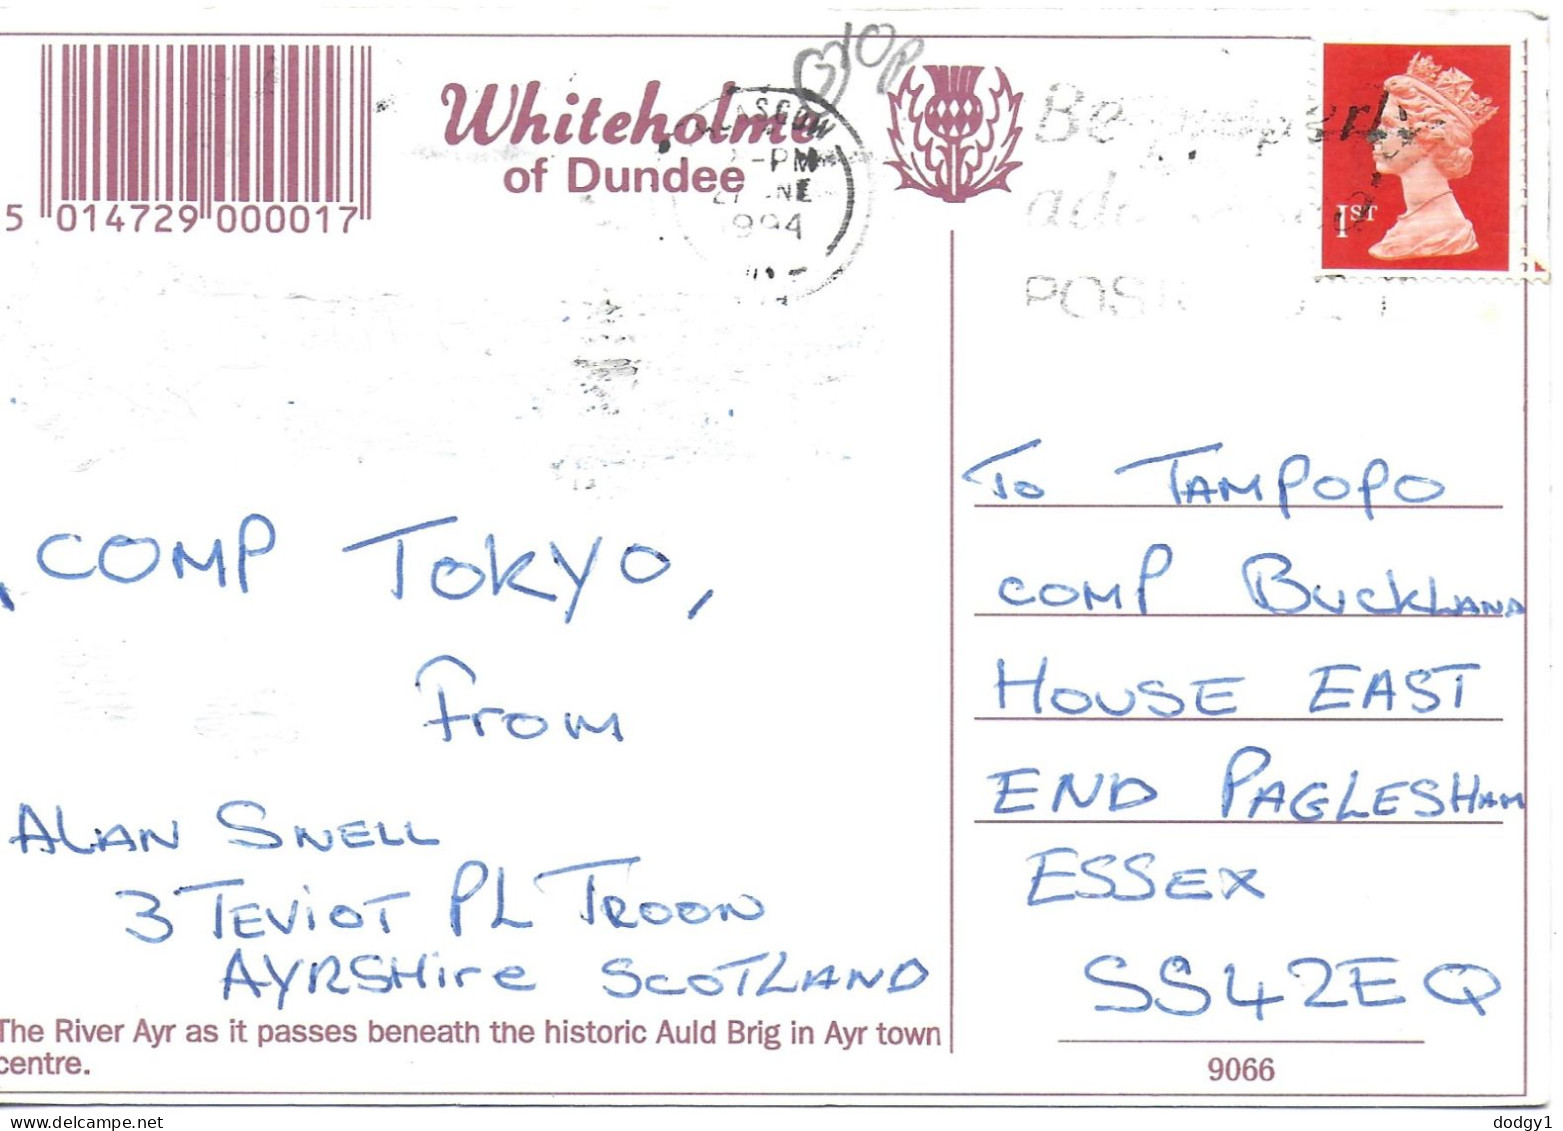 5 014729 000017
Whiteholme
of Dundee
PM
1994
Be properly
1ST
To TAMPOPO
COMP BUCKLAND
HOUSE EAST
END PAGLESHAM
ESSEX
SS42EQ
9066
COMP TOKYO,
From
ALAN SNELL
3 TEVIOT PL TROON
AYRSHire SCOTLAND
The River Ayr as it passes beneath the historic Auld Brig in Ayr town
centre.
dodgy1